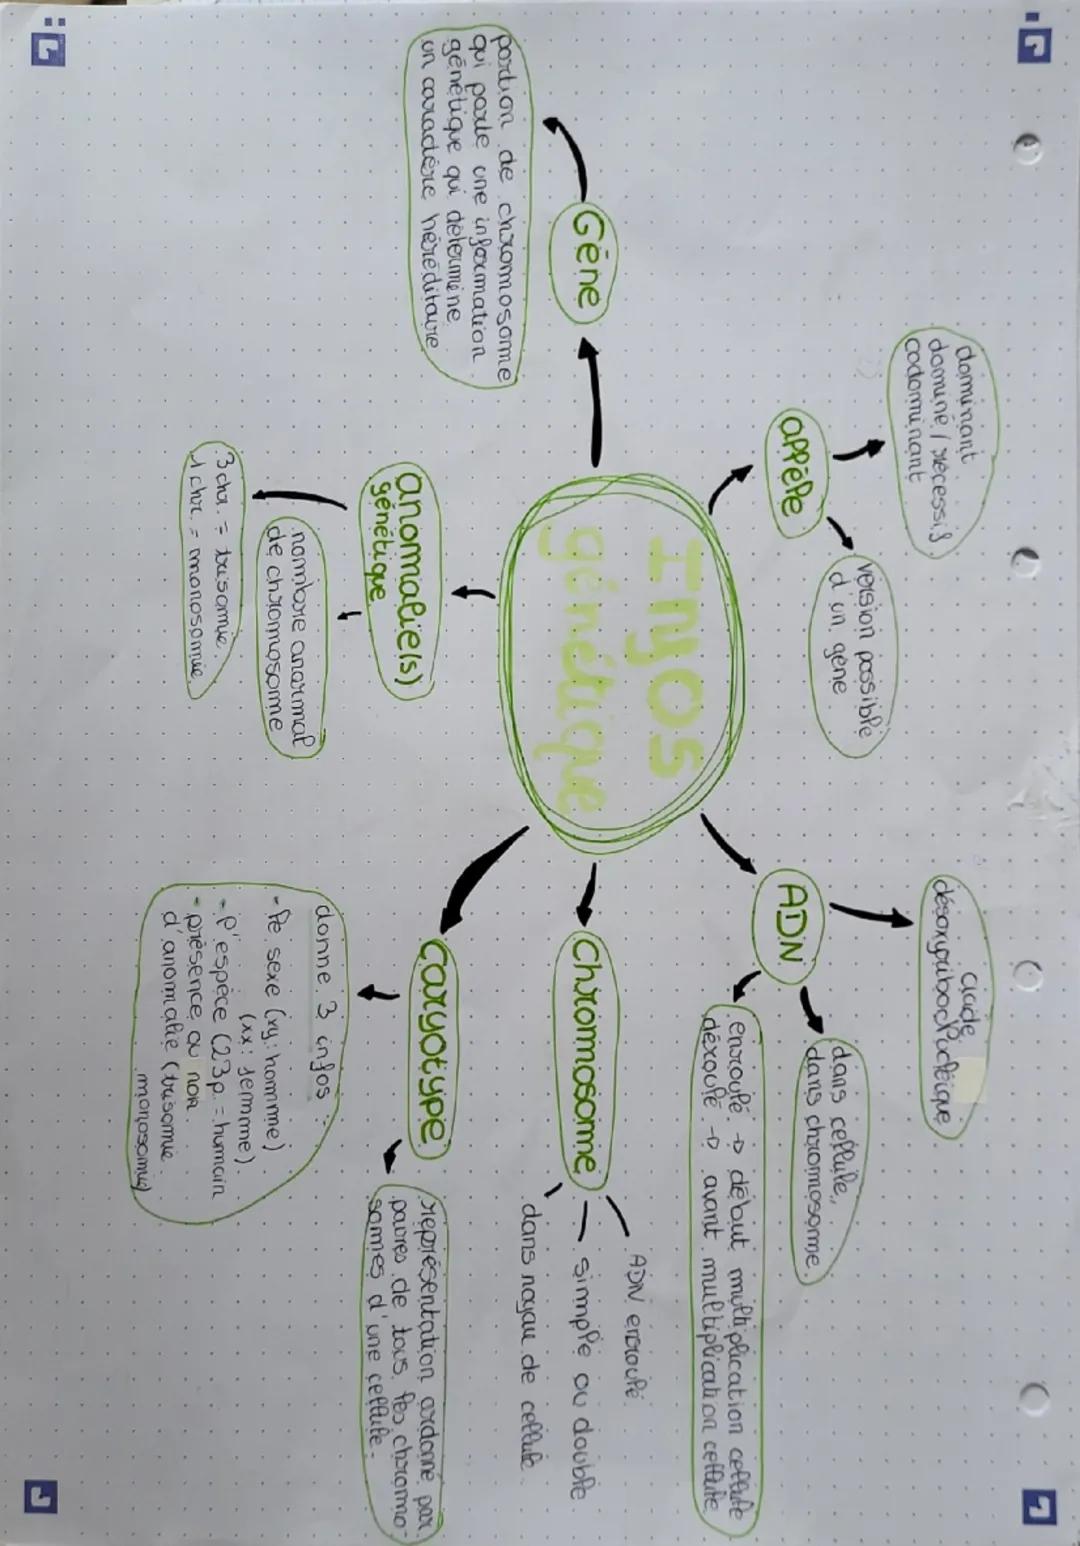 Infos
génétique
Gène
portion de chromosome
qui porte une information
génétique qui détermine
un caractère héréditaire
appèle
dominant
dominé / récessif
codominant
version possible
d'un gène
ADN
acide
désoxyribocluclèique
dans cellule,
dans chromosome.
enroulé → début multiplication cellule
déroulé → avant multiplication cellule
Chromosome
ADN enroulé.
simple ou double
dans noyau de cellule
caryotype
représentation ordonné par
paires de tous les chromo-
somes d'une cellule.
donne 3 infos :
- le sexe (xy: homme)
(xx: femme)
- l'espèce (23p. = humain
- présence ou non
d'anomalie (trisomie
monosomie)
anomalie(s)
génétique
nombre anormal
de chromosome
3 chr. = trisomie.
1 chr. = monosomie